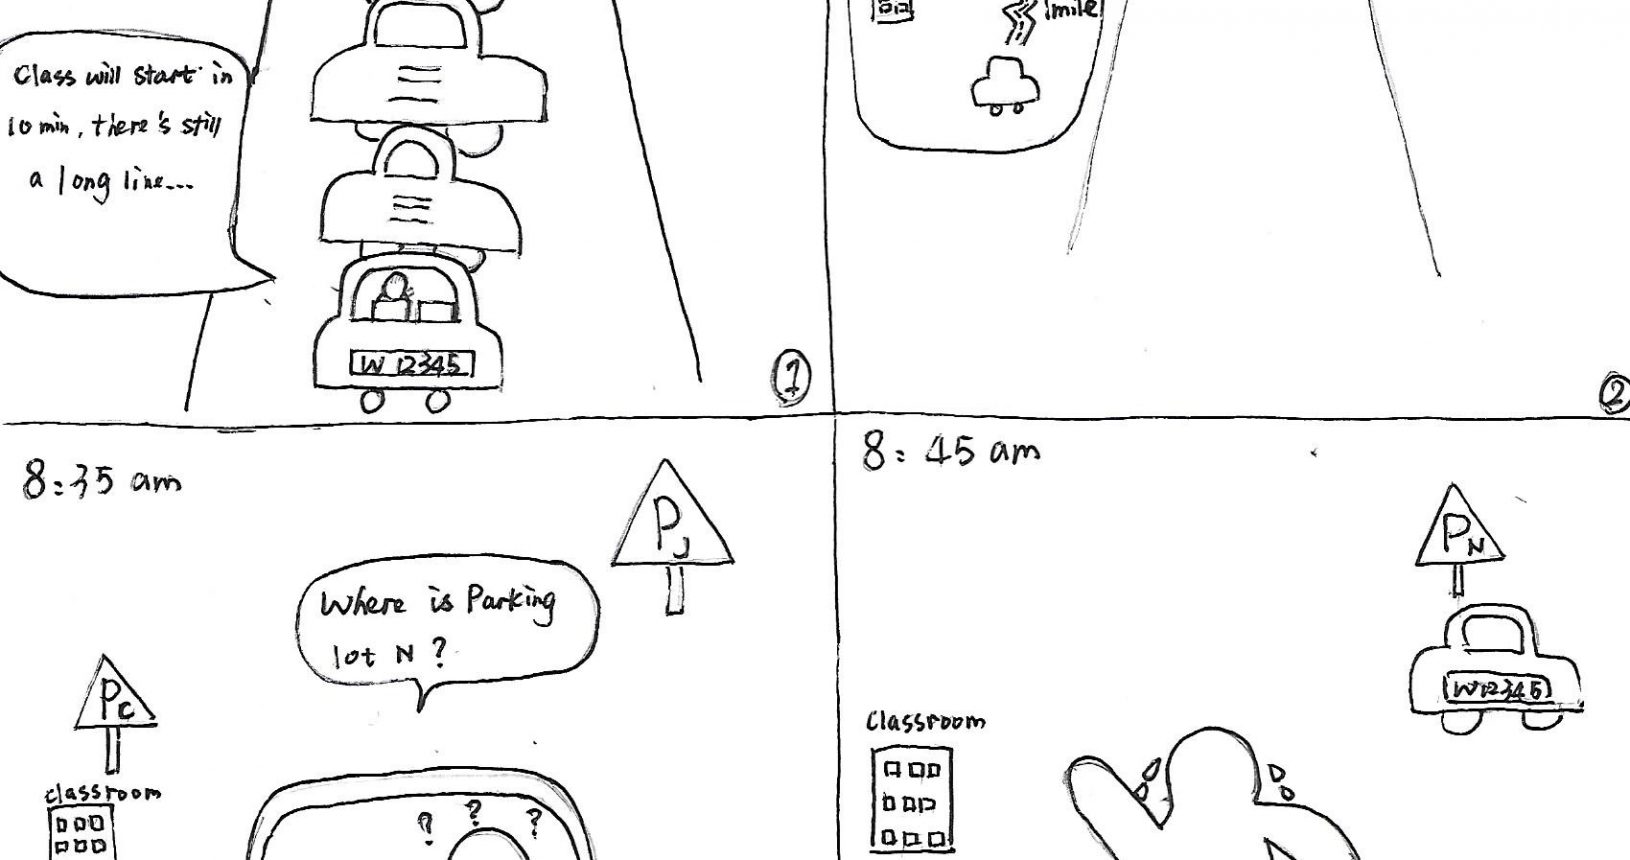 Class will start in
10 min, there's still
a long line...
W 12345
1
1mile
2
8:35 am
PJ
Where is Parking
lot N ?
PC
classroom
? ? ?
8:45 am
PN
W12345
Classroom